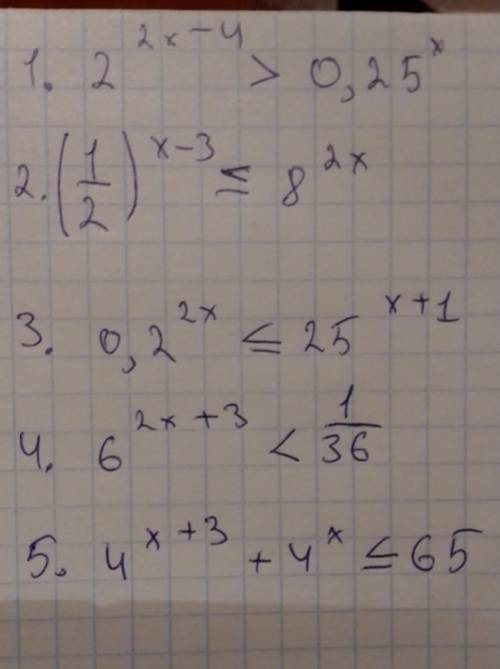 1. 2^(2x-4) > 0,25^x
2. (1/2)^(x-3) ≤ 8^(2x)
3. 0,2^(2x) ≤ 25^(x+1)
4. 6^(2x+3) < 1/36
5. 4^(x+3) + 4^x ≤ 65